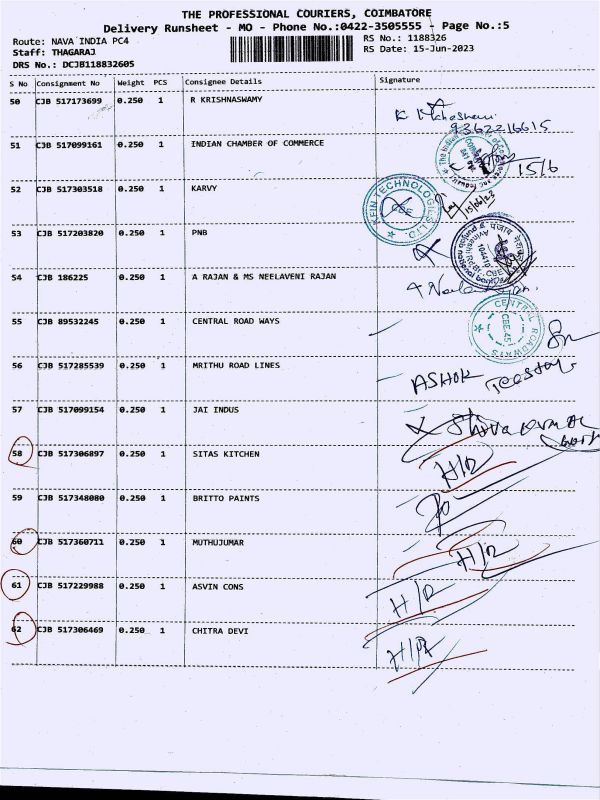 THE PROFESSIONAL COURIERS, COIMBATORE
Delivery Runsheet - MO - Phone No.:0422-3505555 - Page No.:5
Route: NAVA INDIA PC4 RS No.: 1188326
Staff: THAGARAJ RS Date: 15-Jun-2023
DRS No.: DCJB118832605
S No Consignment No Weight PCS Consignee Details Signature
50 CJB 517173699 0.250 1 R KRISHNASWAMY
9362216615
51 CJB 517099161 0.250 1 INDIAN CHAMBER OF COMMERCE
15/6
52 CJB 517303518 0.250 1 KARVY
KFIN TECHNOLOGIES LTD. CBE
15/06/23
53 CJB 517203820 0.250 1 PNB
54 CJB 186225 0.250 1 A RAJAN & MS NEELAVENI RAJAN
55 CJB 89532245 0.250 1 CENTRAL ROAD WAYS
CENTRAL ROADWAYS CBE-45
56 CJB 517285539 0.250 1 MRITHU ROAD LINES
ASHOK
57 CJB 517099154 0.250 1 JAI INDUS
58 CJB 517306897 0.250 1 SITAS KITCHEN
H/R
59 CJB 517348080 0.250 1 BRITTO PAINTS
60 CJB 517360711 0.250 1 MUTHUJUMAR
H/R
61 CJB 517229988 0.250 1 ASVIN CONS
H/R
62 CJB 517306469 0.250 1 CHITRA DEVI
H/R